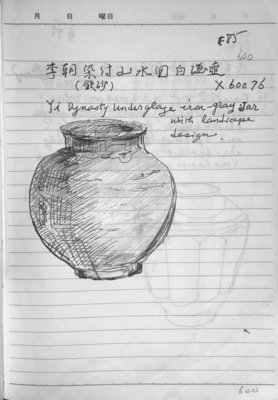 月 日 曜日
#85
600
李朝染付山水図白磁壷
(鉄砂)
X60076
Yi Dynasty underglaze iron-gray Jar
with landscape
design.
600